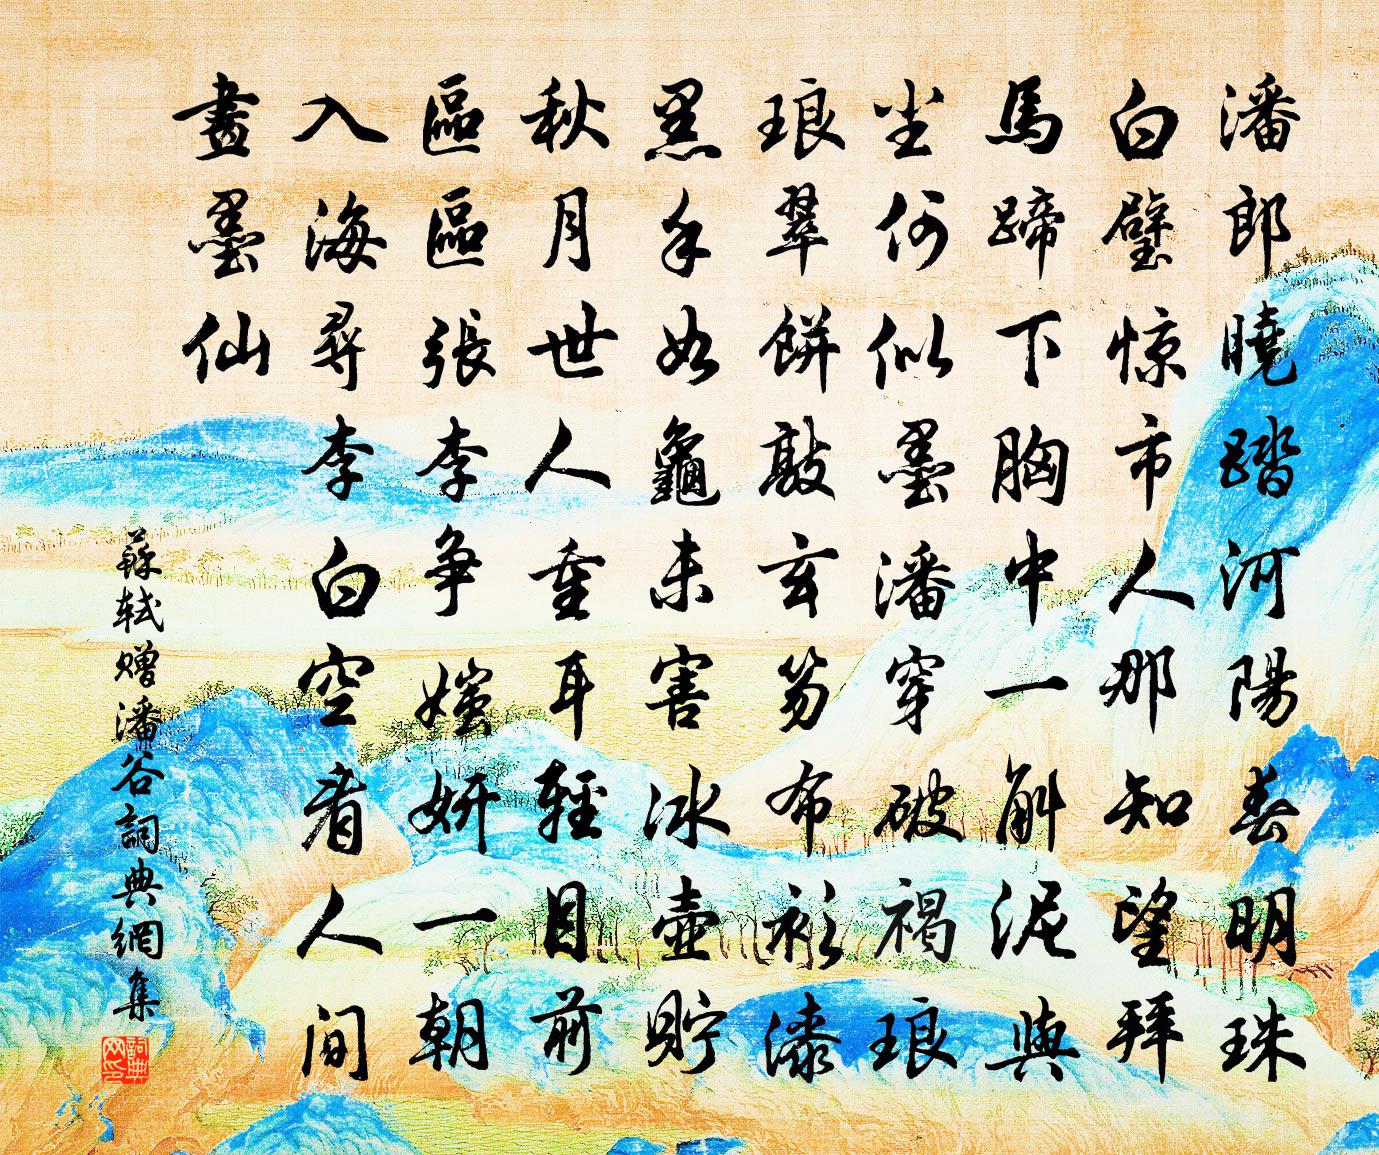 潘郎曉踏河陽春明珠
白璧惊市人那知望拜
馬蹄下胸中一斛泥與
尘何似墨潘穿破褐琅
琅翠餅敲玄笏布衫漆
黑手如龜未害冰壺貯
秋月世人重耳輕目前
區區張李争媸妍一朝
入海尋李白空看人间
畫墨仙
蘇軾贈潘谷詞典網集